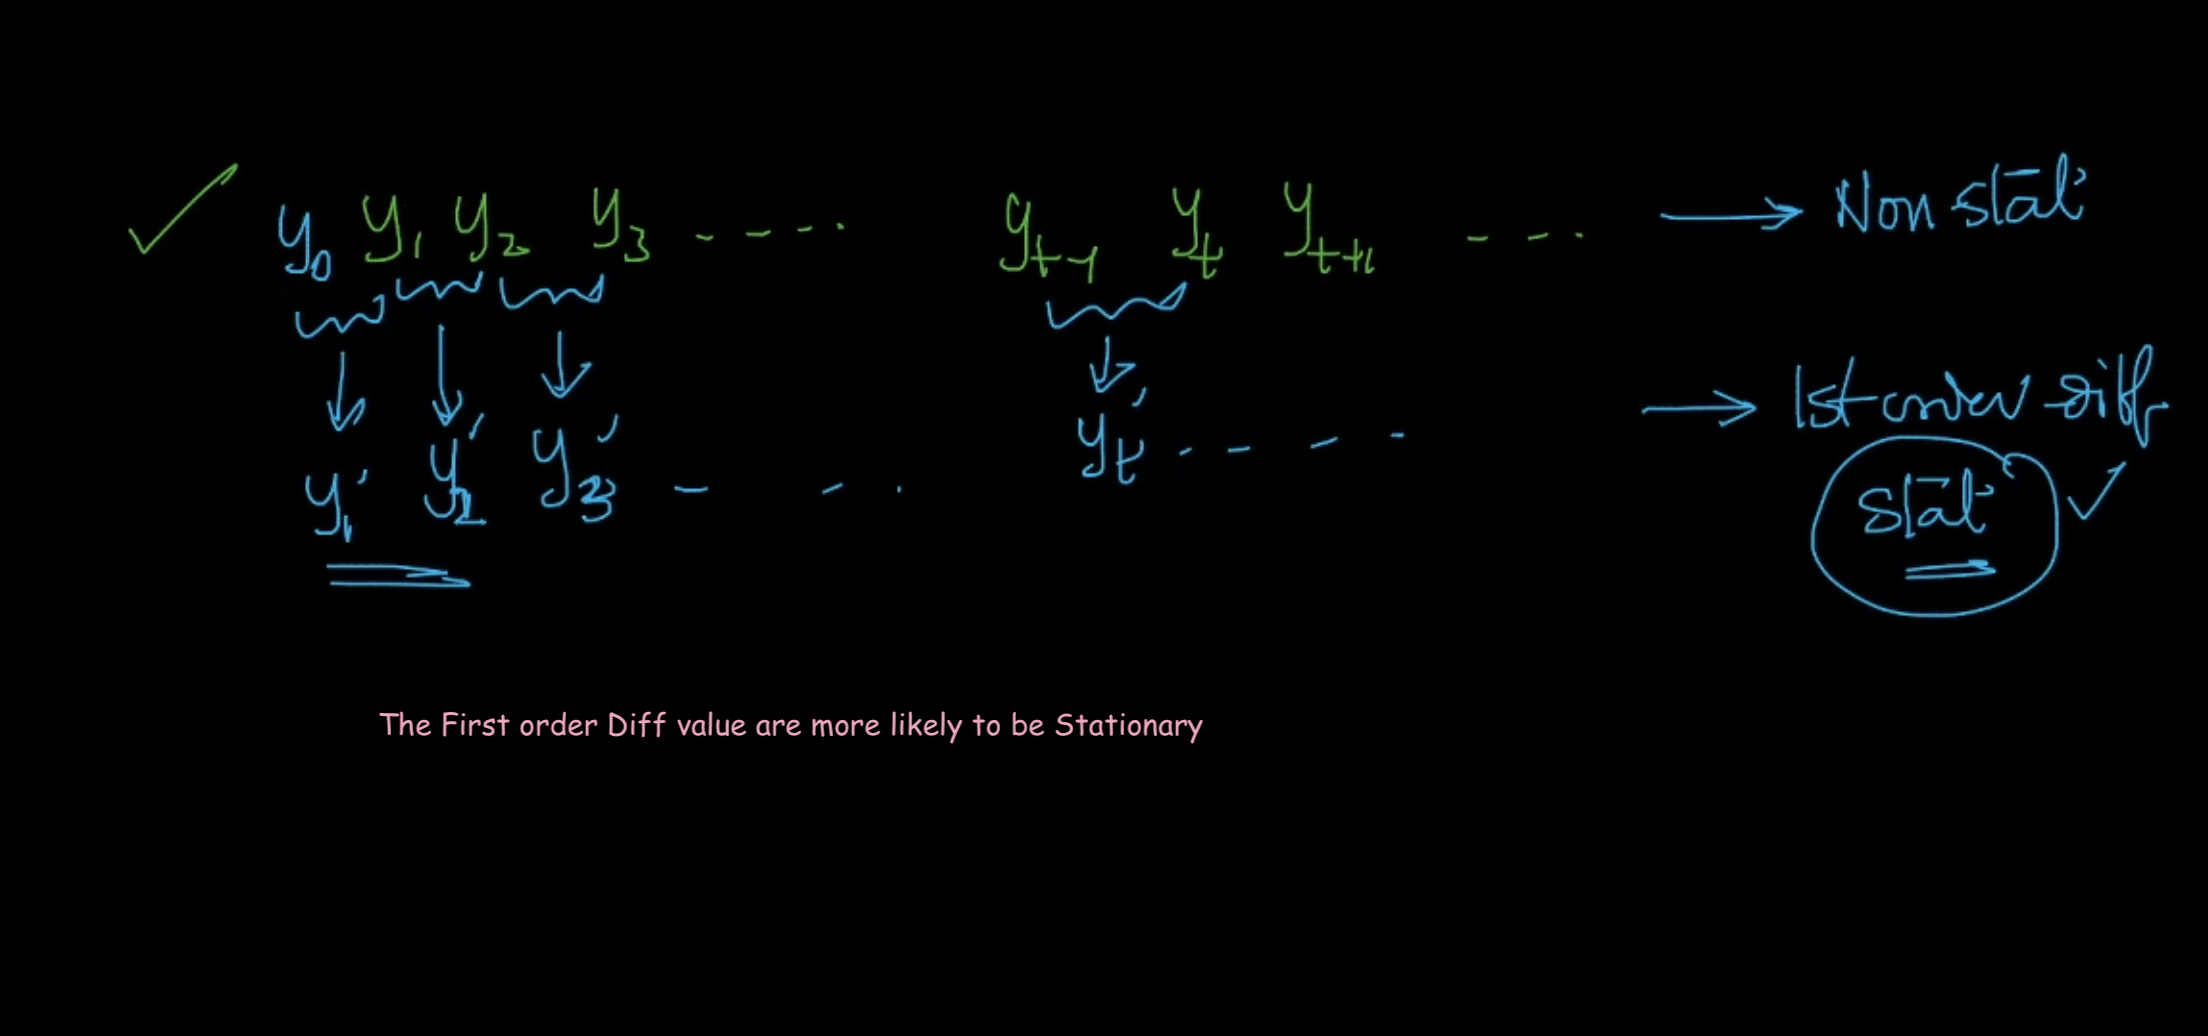 y₀ y₁ y₂ y₃ - - - - yₜ₋₁ yₜ yₜ₊₁ - - - → Non stat
→ 1st order diff
y₁' y₂' y₃' - - . yₜ' - - - -
stat
The First order Diff value are more likely to be Stationary